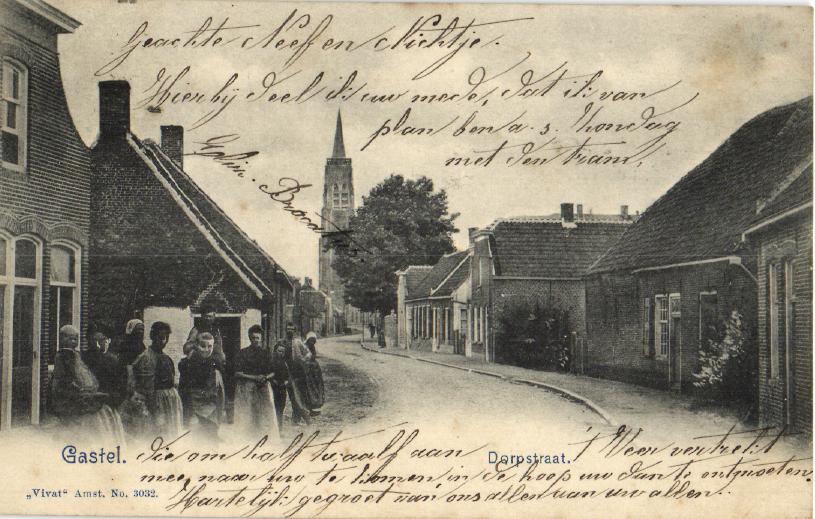 Geachte Neef en Nichtje.
Hierbij deel ik uw mede, dat ik van
plan ben a. s. Zondag
met den tram,
Gastel.
die om half twaalf aan
Dorpstraat.
't Meer vertrekt
mee naar uw te komen, in de hoop uw dan te ontmoeten.
„Vivat" Amst. No. 3032.
Hartelijk gegroet van ons allen aan uw allen.